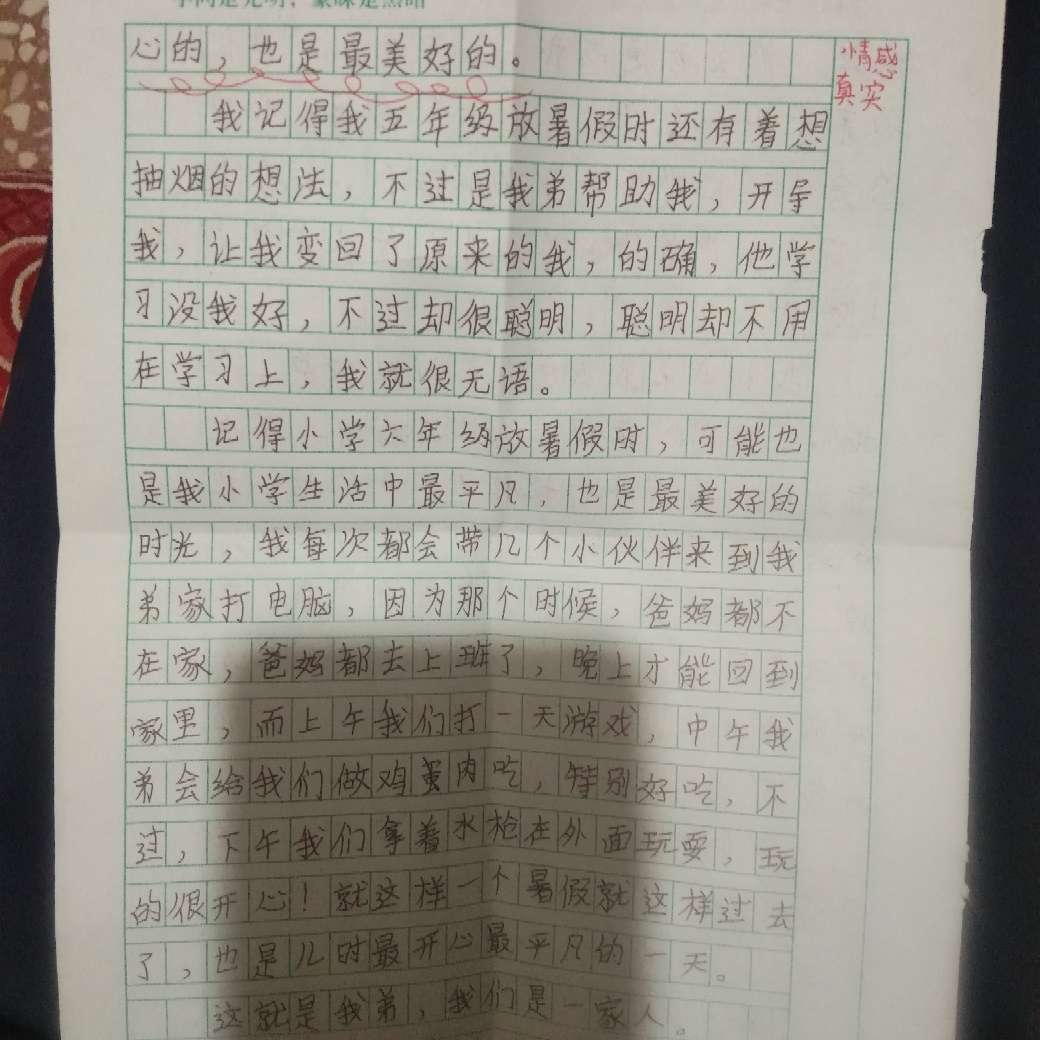 心的，也是最美好的。
情感
真实
我记得我五年级放暑假时还有着想
抽烟的想法，不过是我弟帮助我，开导
我，让我变回了原来的我，的确，他学
习没我好，不过却很聪明，聪明却不用
在学习上，我就很无语。
记得小学六年级放暑假时，可能也
是我小学生活中最平凡，也是最美好的
时光，我每次都会带几个小伙伴来到我
弟家打电脑，因为那个时候，爸妈都不
在家，爸妈都去上班了，晚上才能回到
家里，而上午我们打一天游戏，中午我
弟会给我们做鸡蛋肉吃，特别好吃，不
过，下午我们拿着水枪在外面玩耍，玩
的很开心！就这样一个暑假就这样过去
了，也是儿时最开心最平凡的一天。
这就是我弟，我们是一家人。